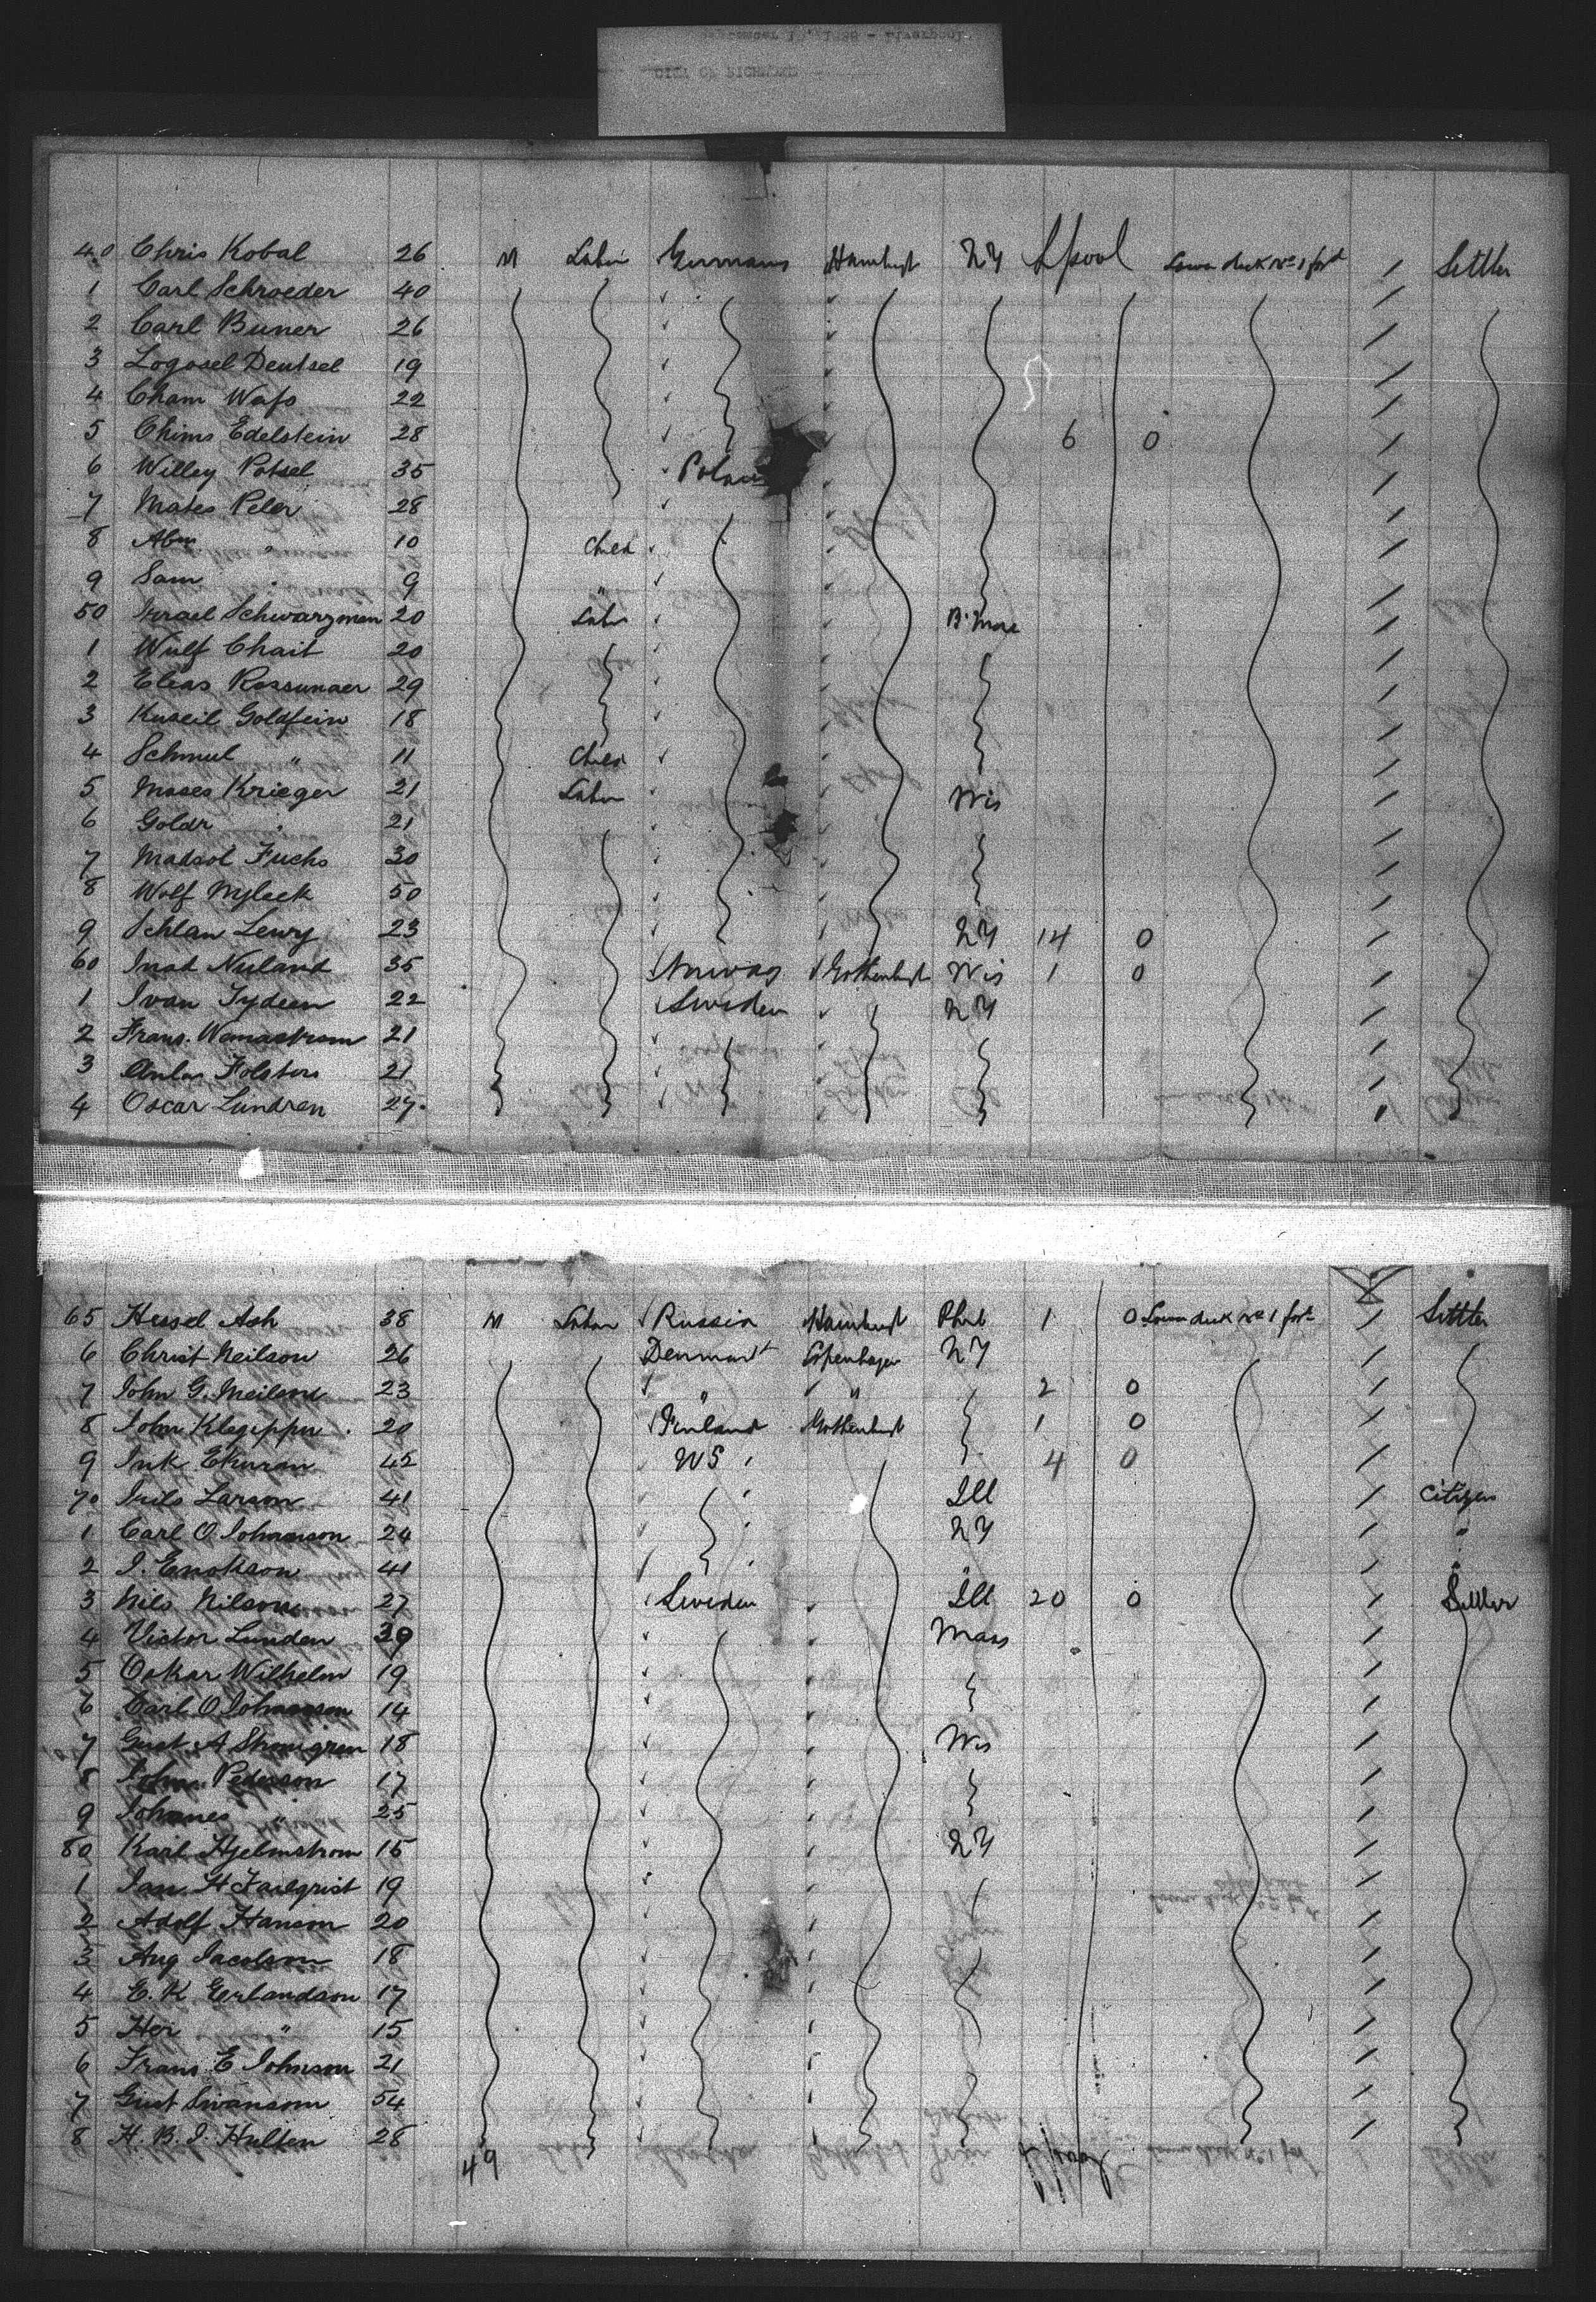 40 Chris Kobal 26 M Labr Germany Hamburg NY L'pool Lower deck No 1 for'd / Settler
1 Carl Schroeder 40 /
2 Carl Buner 26 /
3 Logosel Deutsel 19 /
4 Cham Wafo 22 /
5 Chims Edelstein 28 6 0 /
6 Willey Potsel 35 Poland /
7 Mates Peler 28 /
8 Abm " 10 Child /
9 Sam " 9 " /
50 Israel Schwarzman 20 Labr B'more /
1 Wulf Chait 20 /
2 Elias Rossunaer 29 /
3 Kuseil Goldfein 18 /
4 Schmul " 11 Child /
5 Moses Krieger 21 Labr Wis /
6 Goldr " 21 /
7 Madsol Fuchs 30 /
8 Wolf 50 /
9 Schlan Lewy 23 NY 14 0 /
60 Nuland 35 Norway Gothenburg Wis 1 0 /
1 Ivan Tydeen 22 Sweden NY /
2 Frans. Womastrom 21 /
3 Folsters 21 /
4 Oscar Lundren 27 /
65 Hessel Ash 38 M Labor Russia Hamburg Phil 1 0 Lower deck No 1 for'd / Settler
6 Christ Neilson 26 Denmark Copenhagen NY /
7 John G. Neilson 23 " " 2 0 /
8 John Klegippu 20 Finland Gothenburg 1 0 /
9 Ekuran 45 US 4 0 /
70 Larson 41 Ill / Citizen
1 Carl O Johanson 24 NY / "
2 J. Enokson 41 " / "
3 Nils Nilson 27 Sweden Ill 20 0 / Settler
4 Victor Lunden 39 Mass /
5 Oskar Wilhelm 19 /
6 Carl O Johanson 14 /
7 Gust A Stromgren 18 Wis /
8 John Pederson 17 /
9 Johanes " 25 /
80 Karl Hjelmstrom 15 NY /
1 Jan H Farlqrist 19 /
2 Adolf Hanson 20 /
3 Aug Jacobson 18 /
4 E. K Gerlandson 17 /
5 Her " 15 /
6 Frans E Johnson 21 /
7 Gust Swanson 54 /
8 H. B. J. Hulten 28 /
49 L'pool